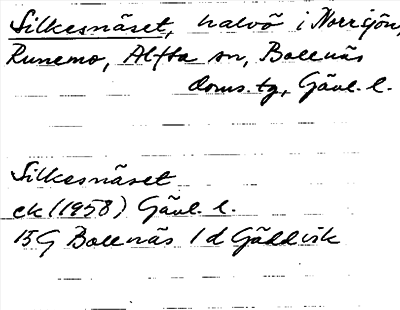 Silkesnäset, halvö i Norrsjön,
Runemo, Alfta sn, Bollnäs
doms.tg, Gävl. l.
Silkesnäset
ek (1958) Gävl. l.
15G Bollnäs 1d Gäddvik